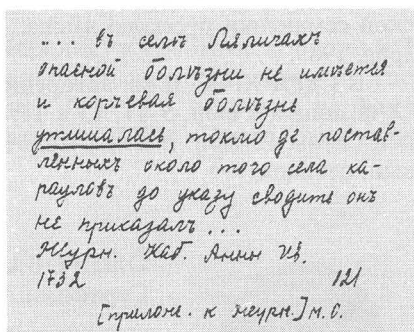 ... въ селѣ Ляличахъ
опасной болѣзни не имѣется
и корчевая болѣзнь
утишалась, токмо де постав-
ленныхъ около того села ка-
рауловъ до указу сводить онъ
не приказалъ ...
Журн. Каб. Анны Ив.
1732 121
[прилож. к журн.] М. С.